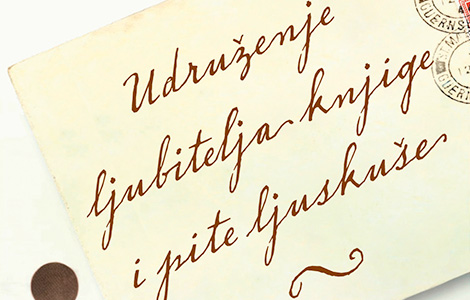 Udruženje
ljubitelja knjige
i pite ljuskuše
GUERNSEY
GUERNSEY